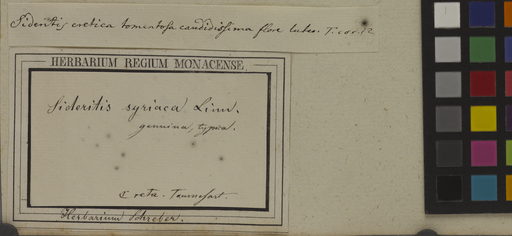 Sideritis cretica tomentosa candidissima flore luteo. T. cor. 12
HERBARIUM REGIUM MONACENSE.
Sideritis syriaca Linn.
genuina, typica.
Creta. Tournefort.
Herbarium Schreber.